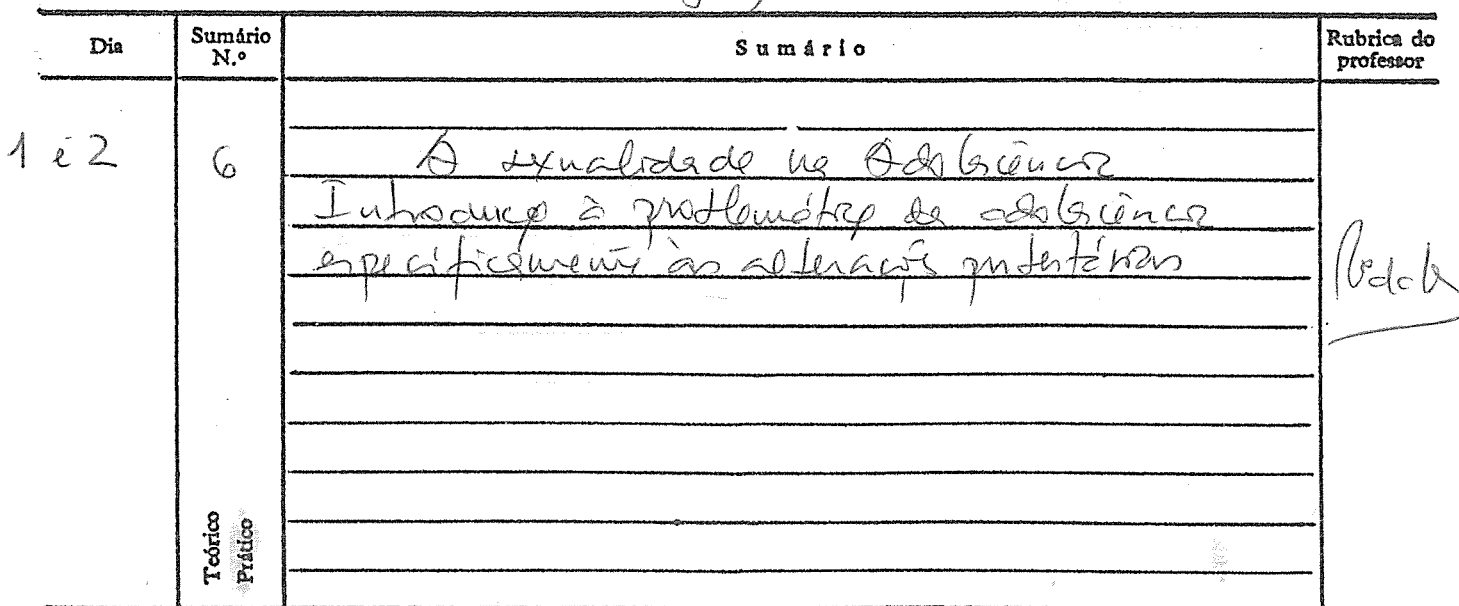 Dia
Sumário N.º
Sumário
Rubrica do professor
1 e 2
6
A sexualidade na Adolescência
Introdução à problemática da adolescência
especificamente às alterações pubertárias
Teórico
Prático